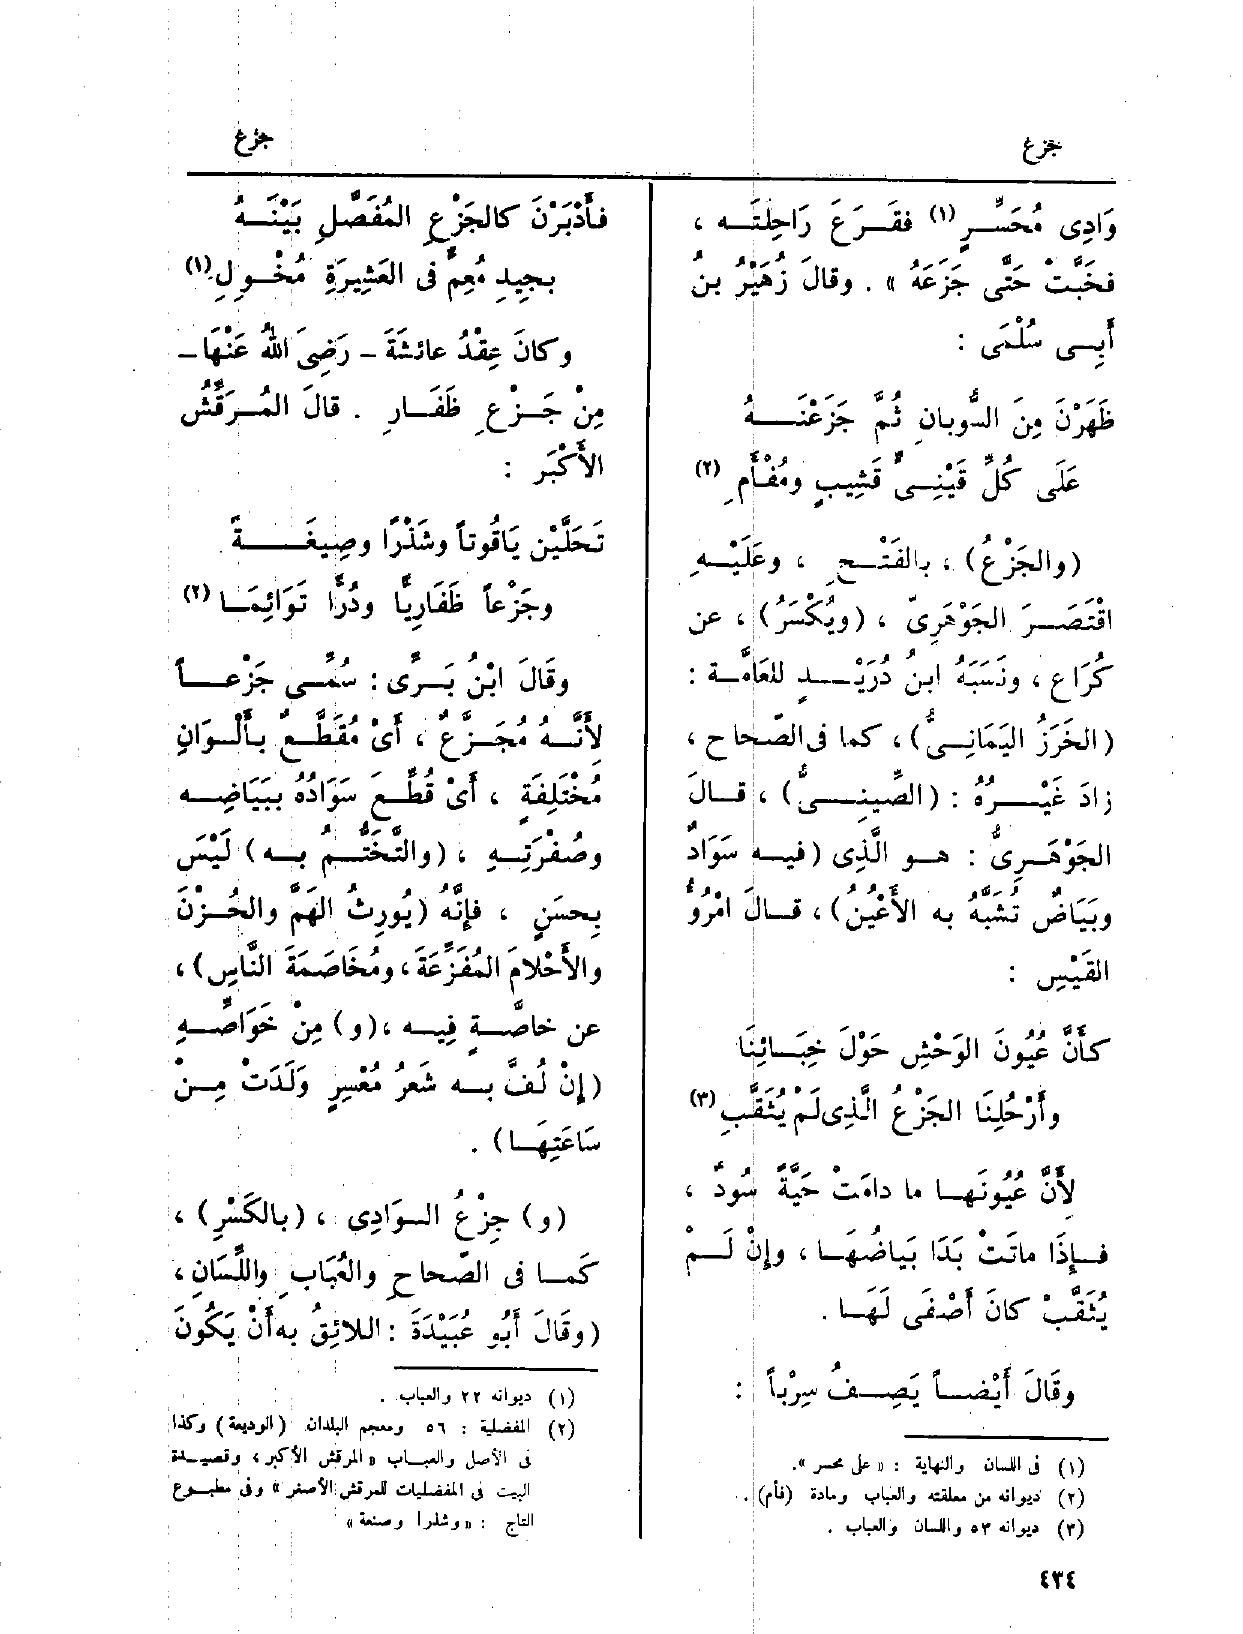 جزع
جزع
وَادِى مُحَسِّرٍ (١) فقَـرَعَ رَاحِلتَـه ،
فخَبَّتْ حَتَّى جَزَعَهُ » . وقالَ زُهَيْرُ بنُ
أَبِـى سُلْمَى :
ظَهَرْنَ مِنَ السُّوبانِ ثُمَّ جَزَعْنَـهُ
عَلَى كُلِّ قَيْنِـىٍّ قَشِيبٍ ومُفْـأَمِ (٢)
(والجَزْعُ) ، بالفَتْـحِ ، وعَلَيْـهِ
اقْتَصَـرَ الجَوْهَرِىّ ، (ويُكْسَرُ) ، عن
كُرَاعٍ ، ونَسَبَهُ ابنُ دُرَيْـدٍ للعَامَّـة :
(الخَرَزُ اليَمَانِـىُّ) ، كما فى الصّحاح ،
زادَ غَيْـرُهُ : (الصِّينِـىُّ) ، قـالَ
الجَوْهَـرِىُّ : هـو الَّذِى (فيـه سَوَادٌ
وبَيَاضٌ تُشَبَّهُ به الأَعْيُنُ) ، قـالَ امْرُؤُ
القَيْسِ :
كأَنَّ عُيُونَ الوَحْشِ حَوْلَ خِبَـائِنَا
وأَرْحُلِنَا الجَزْعُ الَّذِى لَمْ يُثَقَّبِ (٣)
لأَنَّ عُيُونَهـا ما دامَتْ حَيَّةً سُودٌ ،
فـإِذَا ماتَتْ بَدَا بَياضُهَـا ، وإِنْ لَـمْ
يُثَقَّبْ كانَ أَصْفَى لَهَـا .
وقالَ أَيْضـاً يَصِـفُ سِرْباً :
(١) فى اللسان والنهاية : « على محسر » .
(٢) ديوانه من معلقته والعباب ومادة (فأم) .
(٣) ديوانه ٥٣ واللسان والعباب .
فأَدْبَرْنَ كالجَزْعِ المُفَصَّلِ بَيْنَـهُ
بجِيدِ مُعِمٍّ فى العَشِيرَةِ مُخْـوِلِ (١)
وكانَ عِقْدُ عائشَةَ - رَضِىَ اللهُ عَنْهَا -
مِنْ جَـزْعِ ظَفَـارِ . قالَ المُـرَقِّشُ
الأَكْبَر :
تَحَلَّيْنَ يَاقُوتاً وشَذْرًا وصِيغَـةً
وجَزْعاً ظَفَارِيًّا ودُرًّا تَوَائِمَـا (٢)
وقَالَ ابْنُ بَـرِّى : سُمِّـى جَزْعـاً
لأَنَّـهُ مُجَـزَّعٌ ، أَىْ مُقَطَّـعٌ بـأَلْـوَانٍ
مُخْتَلِفَةٍ ، أَىْ قُطِّـعَ سَوَادُهُ ببَيَاضِـه
وصُفْرَتِـهِ ، (والتَّخَتُّـمُ بـه) لَيْسَ
بِحسَنٍ ، فإِنَّهُ (يُورِثُ الهَمَّ والحُـزْنَ
والأَحْلامَ المُفَزِّعَةَ ، ومُخَاصَمَةَ النَّاسِ) ،
عن خاصَّـةٍ فِيـه ، (و) مِنْ خَوَاصِّـهِ
(إِنْ لُفَّ بـه شَعرُ مُعْسِرٍ وَلَدَتْ مِـنْ
سَاعَتِهَـا) .
(و) جِزْعُ الـوَادِى ، (بالكَسْرِ) ،
كَمـا فى الصّحاح والعُبَابِ واللِّسَانِ ،
(وقَالَ أَبُو عُبَيْدَةَ : اللائِقُ به أَنْ يَكُونَ
(١) ديوانه ٢٢ والعباب .
(٢) المفضلية : ٥٦ ومعجم البلدان (الوديعة) وكذا
فى الأصل والعبـاب « المرقش الأكبر » وقصيـدة
البيت فى المفضليات للمرقش الأصغر » وفى مطبـوع
التاج : « وشذرا وصنعة »
٤٣٤